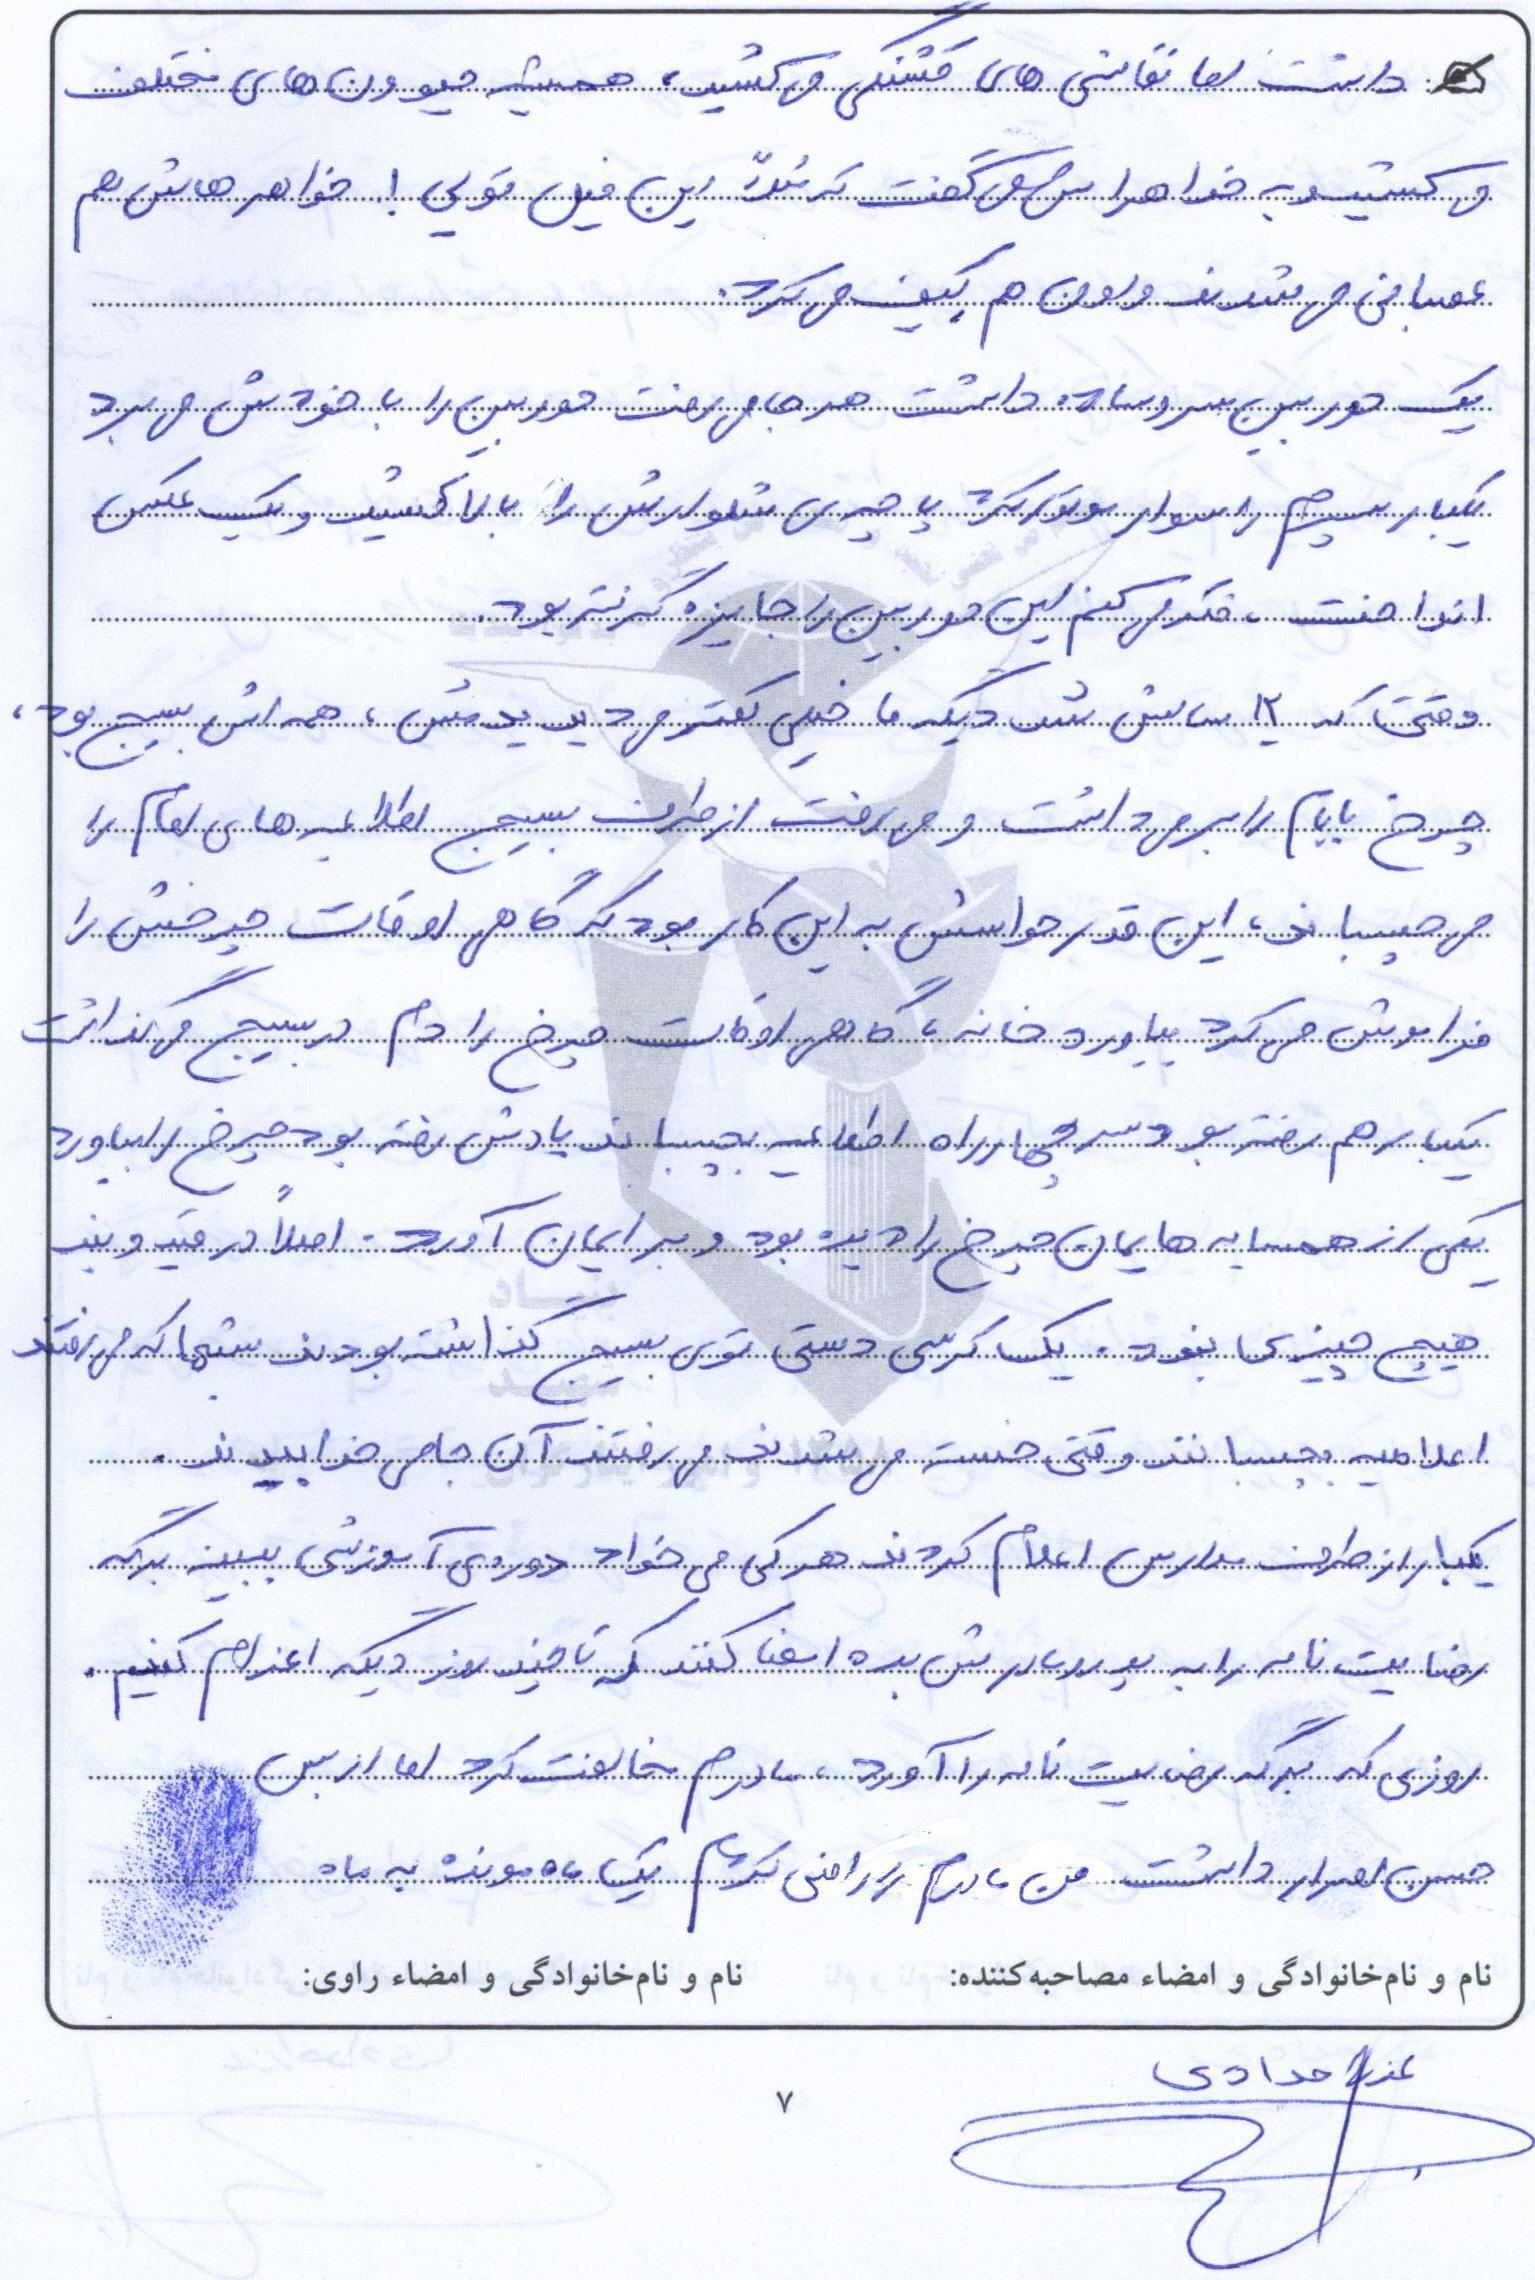 داشت اما نقاشی های قشنگی می کشید، همیشه حیوون های مختلف
می کشید و به خواهراش می گفت که مثلاً این فیل تویی! خواهرهاش هم
عصبانی می شدند و اون هم کیف می کرد.
یک دوربین سر و ساده داشت هر جا می رفت دوربین را با خودش می برد
یکبار پسرم را سوار موتور کرد پاچه ی شلوارش را بالا کشید و یک عکس
انداخت، فکر می کنم این دوربین را جایزه گرفته بود.
وقتی که ۱۲ سالش شد دیگه ما خیلی کمتر می دیدیمش، همه اش بسیج بود،
چرخ بابام را برمی داشت و می رفت از طرف بسیج اطلاعیه های امام را
می چسباند، این قدر حواسش به این کار بود که گاهی اوقات چرخش را
فراموش می کرد بیاورد خانه، گاهی اوقات چرخ را دم در بسیج می گذاشت
یکبار هم رفته بود سر چهارراه اطلاعیه بچسباند یادش رفته بود چرخ را بیاورد
یکی از همسایه هایمان چرخ را دیده بود و برایمان آورد. اصلاً در قید و بند
هیچ چیزی نبود. یک کرسی دستی توی بسیج گذاشته بودند شبها که می رفتند
اعلامیه بچسبانند وقتی خسته می شدند می رفتند آن جا می خوابیدند.
یکبار از طرف مدارس اعلام کردند هر کی می خواد دوره ی آموزشی ببینه برگه
رضایت نامه را به پدر و مادرش بده امضا کنند که تا چند روز دیگه اعزام کنیم.
روزی که برگه رضایت نامه را آورد، مادرم مخالفت کرد اما از بس
حسن اصرار داشت من مادرم را راضی کردم یک ماه مونده به ماه
نام و نام‌خانوادگی و امضاء مصاحبه‌کننده:
نام و نام‌خانوادگی و امضاء راوی:
عذرا حدادی
۷